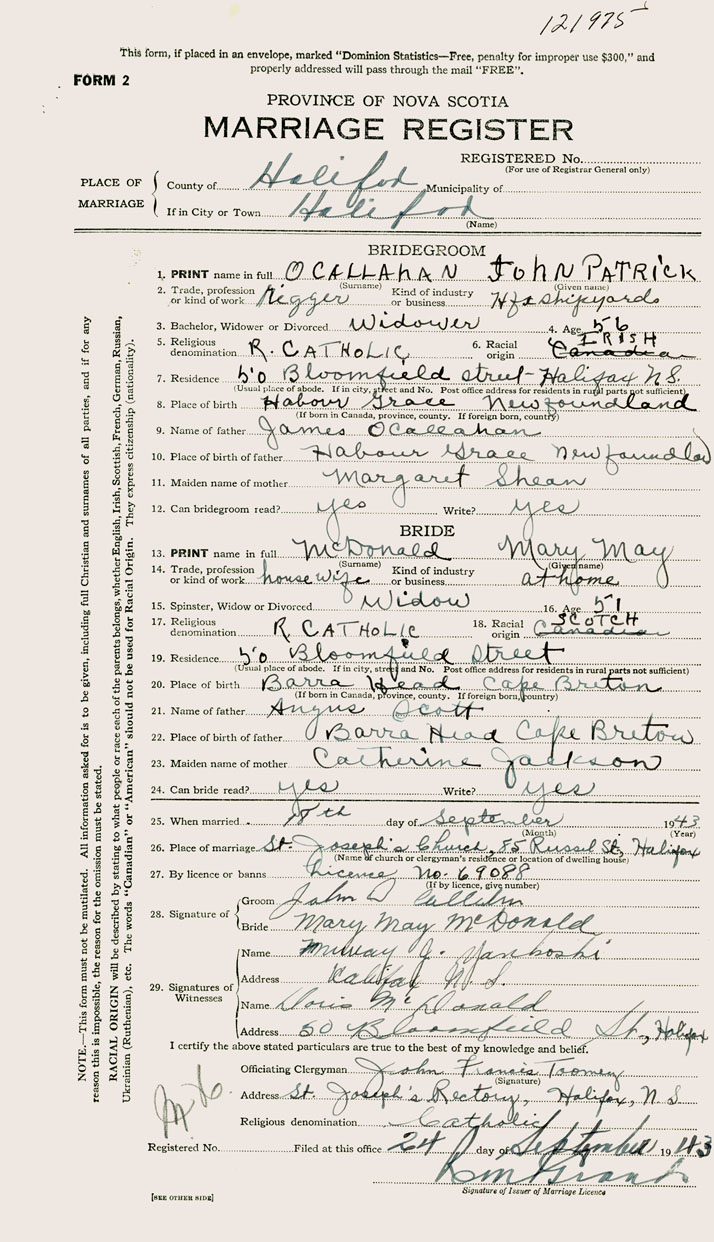 121975
This form, if placed in an envelope, marked "Dominion Statistics—Free, penalty for improper use $300," and
properly addressed will pass through the mail "FREE".
FORM 2
PROVINCE OF NOVA SCOTIA
MARRIAGE REGISTER
REGISTERED No.
(For use of Registrar General only)
PLACE OF MARRIAGE
County of Halifax Municipality of
If in City or Town Halifax
(Name)
BRIDEGROOM
1. PRINT name in full OCALLAHAN JOHN PATRICK
(Surname) (Given name)
2. Trade, profession or kind of work Rigger Kind of industry or business Hfx shipyards
3. Bachelor, Widower or Divorced Widower 4. Age 56
5. Religious denomination R. CATHOLIC 6. Racial origin IRISH Canadian
7. Residence 50 Bloomfield street Halifax N.S.
(Usual place of abode. If in city, street and No. Post office address for residents in rural parts not sufficient)
8. Place of birth Habour Grace Newfoundland
(If born in Canada, province, county. If foreign born, country)
9. Name of father James OCallahan
10. Place of birth of father Habour Grace Newfoundlad
11. Maiden name of mother Margaret Shean
12. Can bridegroom read? yes Write? yes
BRIDE
13. PRINT name in full McDonald Mary May
(Surname) (Given name)
14. Trade, profession or kind of work housewife Kind of industry or business at home
15. Spinster, Widow or Divorced Widow 16. Age 51
17. Religious denomination R. CATHOLIC 18. Racial origin SCOTCH Canadian
19. Residence 50 Bloomfield Street
(Usual place of abode. If in city, street and No. Post office address for residents in rural parts not sufficient)
20. Place of birth Barra Head Cape Breton
(If born in Canada, province, county. If foreign born, country)
21. Name of father Angus Scott
22. Place of birth of father Barra Head Cape Breton
23. Maiden name of mother Catherine Jackson
24. Can bride read? yes Write? yes
25. When married day of September 1943
(Month) (Year)
26. Place of marriage St. Joseph's Church, 85 Russel St., Halifax
(Name of church or clergyman's residence or location of dwelling house)
27. By licence or banns Licence No. 69088
(If by licence, give number)
28. Signature of
Groom John
Bride Mary May McDonald
29. Signatures of Witnesses
Name J.
Address Halifax N.S.
Name Doris McDonald
Address 50 Bloomfield St., Halifax
I certify the above stated particulars are true to the best of my knowledge and belief.
Officiating Clergyman John Francis Toomey
(Signature)
Address St. Joseph's Rectory, Halifax, N S
Religious denomination Catholic
Registered No. Filed at this office 24 day of September 1943
Signature of Issuer of Marriage Licence
[SEE OTHER SIDE]
NOTE.—This form must not be mutilated. All information asked for is to be given, including full Christian and surnames of all parties, and if for any
reason this is impossible, the reason for the omission must be stated.
RACIAL ORIGIN will be described by stating to what people or race each of the parents belongs, whether English, Irish, Scottish, French, German, Russian,
Ukrainian (Ruthenian), etc. The words "Canadian" or "American" should not be used for Racial Origin. They express citizenship (nationality).